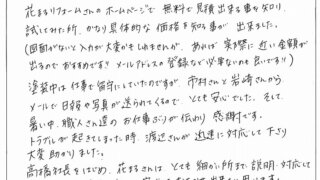 花まるリフォームさんのホームページで無料で見積出来る事を知り、
試してみた所、かなり具体的な価格を知る事が出来ました。
(図面がないと入力が大変かもしれませんが、あれば実際に近い金額が
出るのでおすすめです!! メールアドレスの登録など必要ないのも良いです!!)
塗装中は仕事で留守にしていたのですが、市村さんと岩崎さんから
メールで日報や写真が送られてくるので、とても安心でした。そして、
暑い中、職人さん達のお仕事ぶりが伝わり、感謝です。
トラブルが起きてしまった時、渡辺さんが迅速に対応して下さり
大変助かりました。
高橋社長をはじめ、花まるさんは、とても細かい所まで説明・対応して